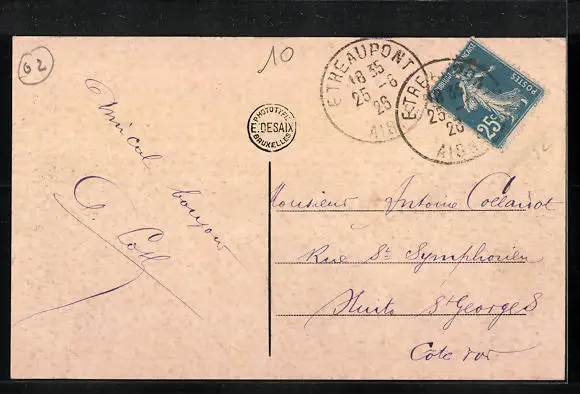 62
10
ETREAUPONT
18 35
25 -6
26
AISNE
ETREAUPONT
25 -6
26
AISNE
RÉPUBLIQUE FRANÇAISE
POSTES
25c
PHOTOTYPIE
E. DESAIX
BRUXELLES
Amical bonjour
Monsieur Antoine
Rue St Symphorien
Nuits St Georges
Côte d'or